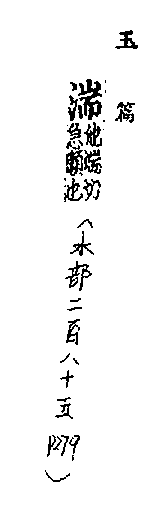 玉篇
湍他端切急瀨也(水部二百八十五P279)